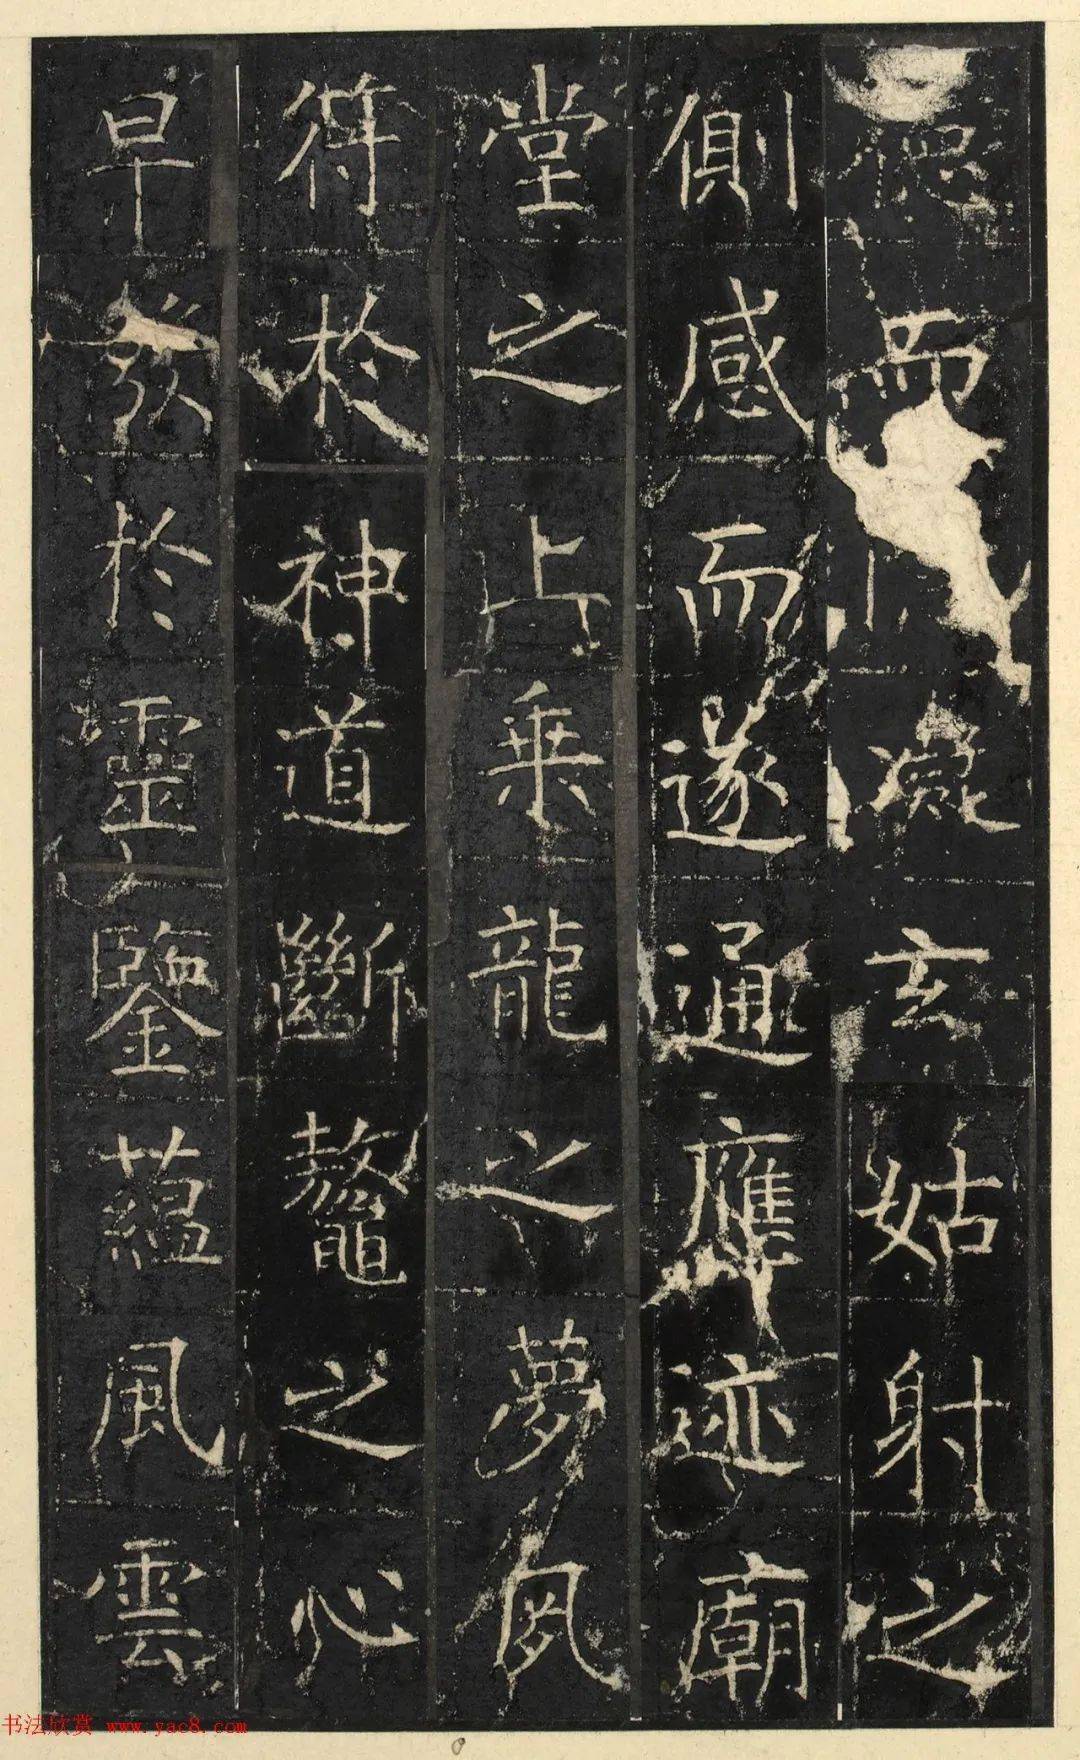 偲而凝玄姑射之
側感而遂通應迹廟
堂之上乘龍之夢夙
符於神道斷鼇之心
早發於靈鑒蘊風雲
书法欣赏 www.yac8.com